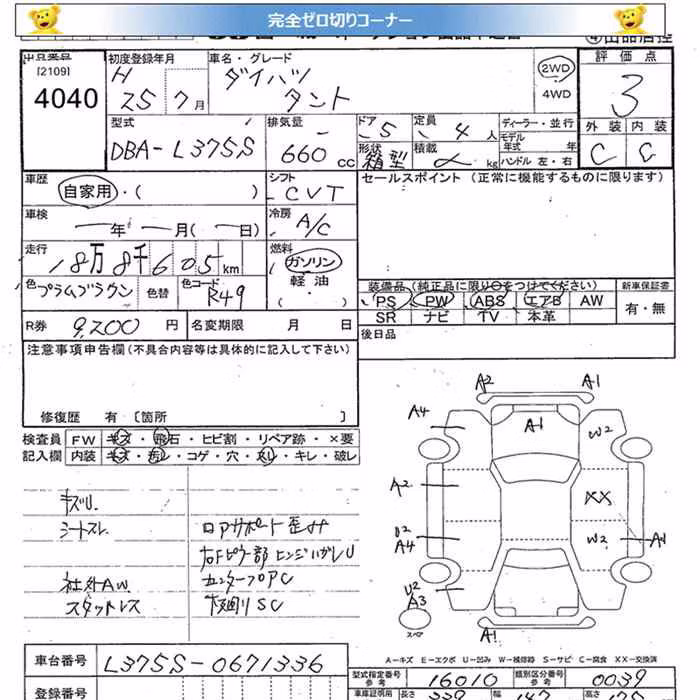 完全ゼロ切りコーナー
出品番号 初度登録年月 車名・グレード 評価点
[2109] 4040 H 25 7月 ダイハツ タント 2WD 4WD 3
型式 排気量 ドア 定員 ディーラー・並行 外装 内装
DBA-L375S 660cc 5 4人 モデル年式 年 C C
形状 箱型 積載 kg ハンドル 左・右
車歴 シフト セールスポイント (正常に機能するものに限ります)
自家用・( ) CVT
車検 年 月( 日) 冷房 A/C
走行 18万8千605km 燃料 ガソリン
軽油
( )
色 プラムブラウン 色替 色コード R49
装備品(純正品に限り○をつけてください) 新車保証書
PS PW ABS エアB AW 有・無
SR ナビ TV 本革
R券 9,200円 名変期限 月 日 後日品
注意事項申告欄(不具合内容等は具体的に記入して下さい)
修復歴 有 [箇所 ]
検査員 FW キズ・飛石・ヒビ割・リペア跡・×要
記入欄 内装 キズ・汚レ・コゲ・穴・スレ・キレ・破レ
キズU.
シートスレ
ロアサポート歪サ
右Fピラー部ヒンジハガレU
社外AW センターフロアC
スタットレス 下廻りSC
A2 A1
A4 A1 W2
A2 XX
U2 A4 W2 A1
U2 A3
スペア A1
A-キズ E-エクボ U-凹み W-補修跡 S-サビ C-腐食 XX-交換済
車台番号 L375S-0671336
型式指定番号 参考 16010 類別区分番号 参考 0039
登録番号 車庫証明用 長さ 339 幅 147 高さ 175